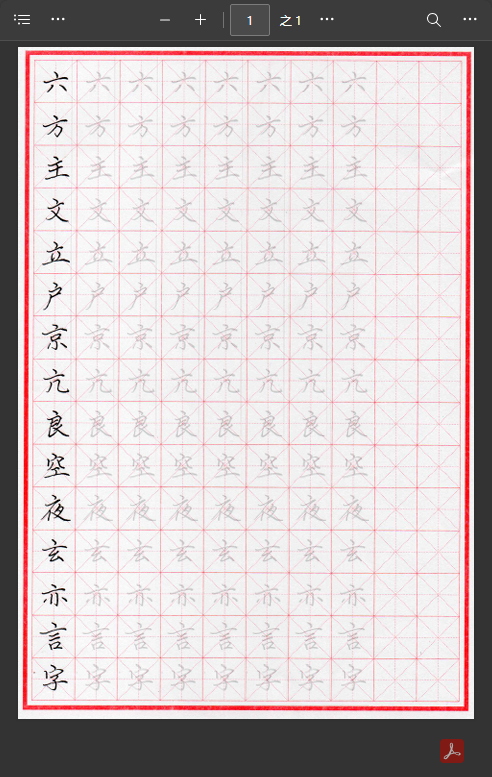 1 之 1
六 六 六 六 六 六 六 六
方 方 方 方 方 方 方 方
主 主 主 主 主 主 主 主
文 文 文 文 文 文 文 文
立 立 立 立 立 立 立 立
户 户 户 户 户 户 户 户
京 京 京 京 京 京 京 京
亢 亢 亢 亢 亢 亢 亢 亢
良 良 良 良 良 良 良 良
空 空 空 空 空 空 空 空
夜 夜 夜 夜 夜 夜 夜 夜
玄 玄 玄 玄 玄 玄 玄 玄
亦 亦 亦 亦 亦 亦 亦 亦
言 言 言 言 言 言 言 言
字 字 字 字 字 字 字 字